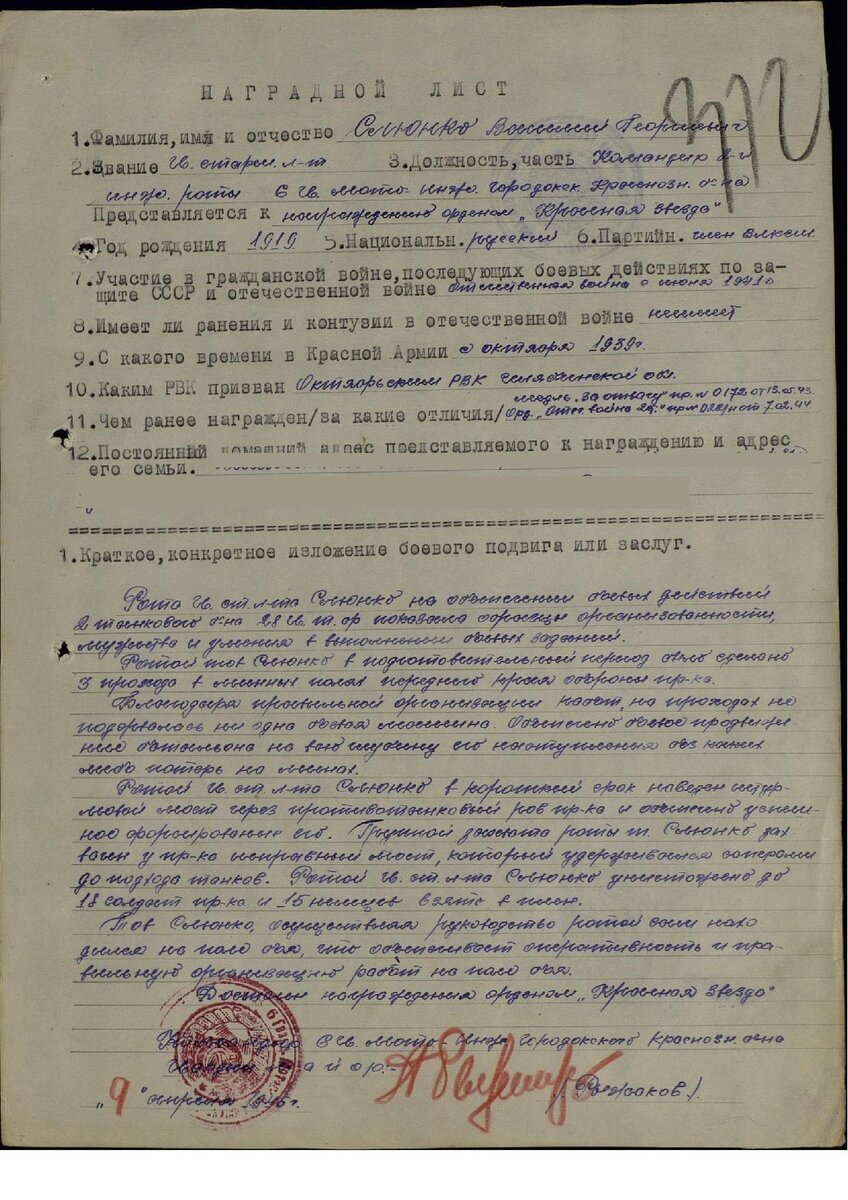 НАГРАДНОЙ ЛИСТ
1.Фамилия, имя и отчество Слюнко Василий Георгиевич
2.Звание Гв. старш. л-т 3.Должность, часть Командир 2-й
инж. роты 6 Гв. мото-инж. Городокск. Краснозн. б-на
Представляется к награждению орденом „Красная звезда"
4.Год рождения 1919 5.Национальн. русский 6.Партийн. член ВЛКСМ
7.Участие в гражданской войне, последующих боевых действиях по за-
щите СССР и отечественной войне Отечественная война с июня 1941г
8.Имеет ли ранения и контузии в отечественной войне не имеет
9.С какого времени в Красной Армии с октября 1939г.
10.Каким РВК призван Октябрьским РВК Челябинской обл.
медаль „За отвагу" пр. № 0172 от 13.05.43.
11.Чем ранее награжден/за какие отличия/ Орд. „Отеч. война 2ст." пр № 022/н от 7.02.44
12.Постоянный домашний адрес представляемого к награждению и адрес
его семьи.
1.Краткое, конкретное изложение боевого подвига или заслуг.
Рота Гв. ст. л-та Слюнко на обеспечении боевых действий
2 танкового б-на 28 Гв. т. бр показала образцы организованности,
мужества и умения в выполнении боевых заданий.
Ротой тов Слюнко в подготовительный период было сделано
3 прохода в минных полях переднего края обороны пр-ка.
Благодаря правильной организации работ, на проходах не
подорвалась ни одна боевая машина. Обеспечено боевое продвиже
ние батальона на всю глубину его наступления без каких
либо потерь на минах.
Ротой Гв. ст. л-та Слюнко в короткий срок наведен штур-
мовой мост через противотанковый ров пр-ка и обеспечено успеш-
ное форсирование его. Группой захвата роты т. Слюнко зах-
вачен у пр-ка исправный мост, который удерживался саперами
до подхода танков. Ротой Гв. ст. л-та Слюнко уничтожено до
18 солдат пр-ка и 15 немцев взято в плен.
Тов Слюнко, осуществляя руководство ротой сам нахо
дился на поле боя, что обеспечивает оперативность и пра-
вильную организацию работ на поле боя.
Достоин награждения орденом „Красная Звезда"
Командир 6 Гв. мото-инж Городокского Краснозн. б-на
Гвардии майор:- /Рыжаков/.
„9" апреля 1945г.